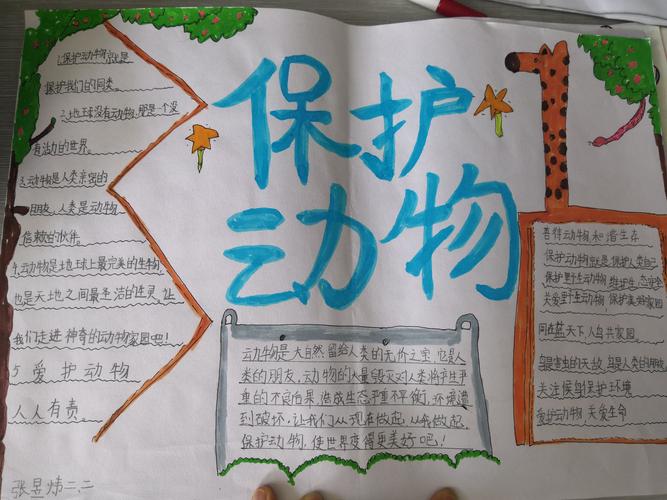 保护
动物
1.保护动物就是
保护我们的同类。
2.地球没有动物,那是一个没
有活力的世界。
3.动物是人类亲密的
朋友,人类是动物
信赖的伙伴。
4.动物是地球上最完美的生物
也是天地之间最圣洁的生灵,让
我们走进神奇的动物家园吧!
5爱护动物
人人有责。
张昱炜二.二
动物是大自然留给人类的无价之宝,它是人
类的朋友,动物的大量毁灭对人类将产生严
重的不良后果,造成生态严重不平衡,环境遭
到破坏,让我们从现在做起,从我做起,
保护动物,使世界变得更美好吧!
善待动物和谐生存
保护动物就是保护人类自己
保护野生动物,维护生态平衡
关爱野生动物,保护美好家园
同在蓝天下人鸟共家园
鸟是害虫的天敌鸟是人类的朋友
关注候鸟保护环境
爱护动物关爱生命